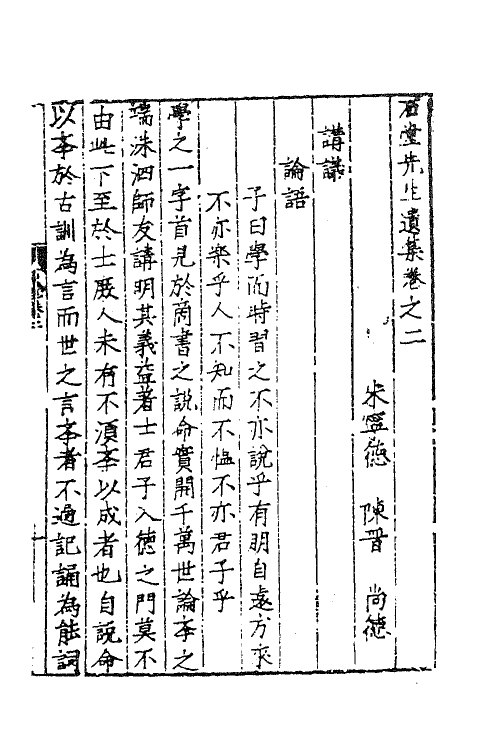 石堂先生遺集卷之二
宋寧德　陳普　尚德
講議
論語
子曰學而時習之不亦說乎有朋自遠方來
不亦樂乎人不知而不慍不亦君子乎
學之一字首見於商書之說命實開千萬世論斈之
端洙泗師友講明其義益著士君子入德之門莫不
由此下至於士庶人未有不須斈以成者也自說命
以斈於古訓為言而世之言斈者不過記誦為能詞